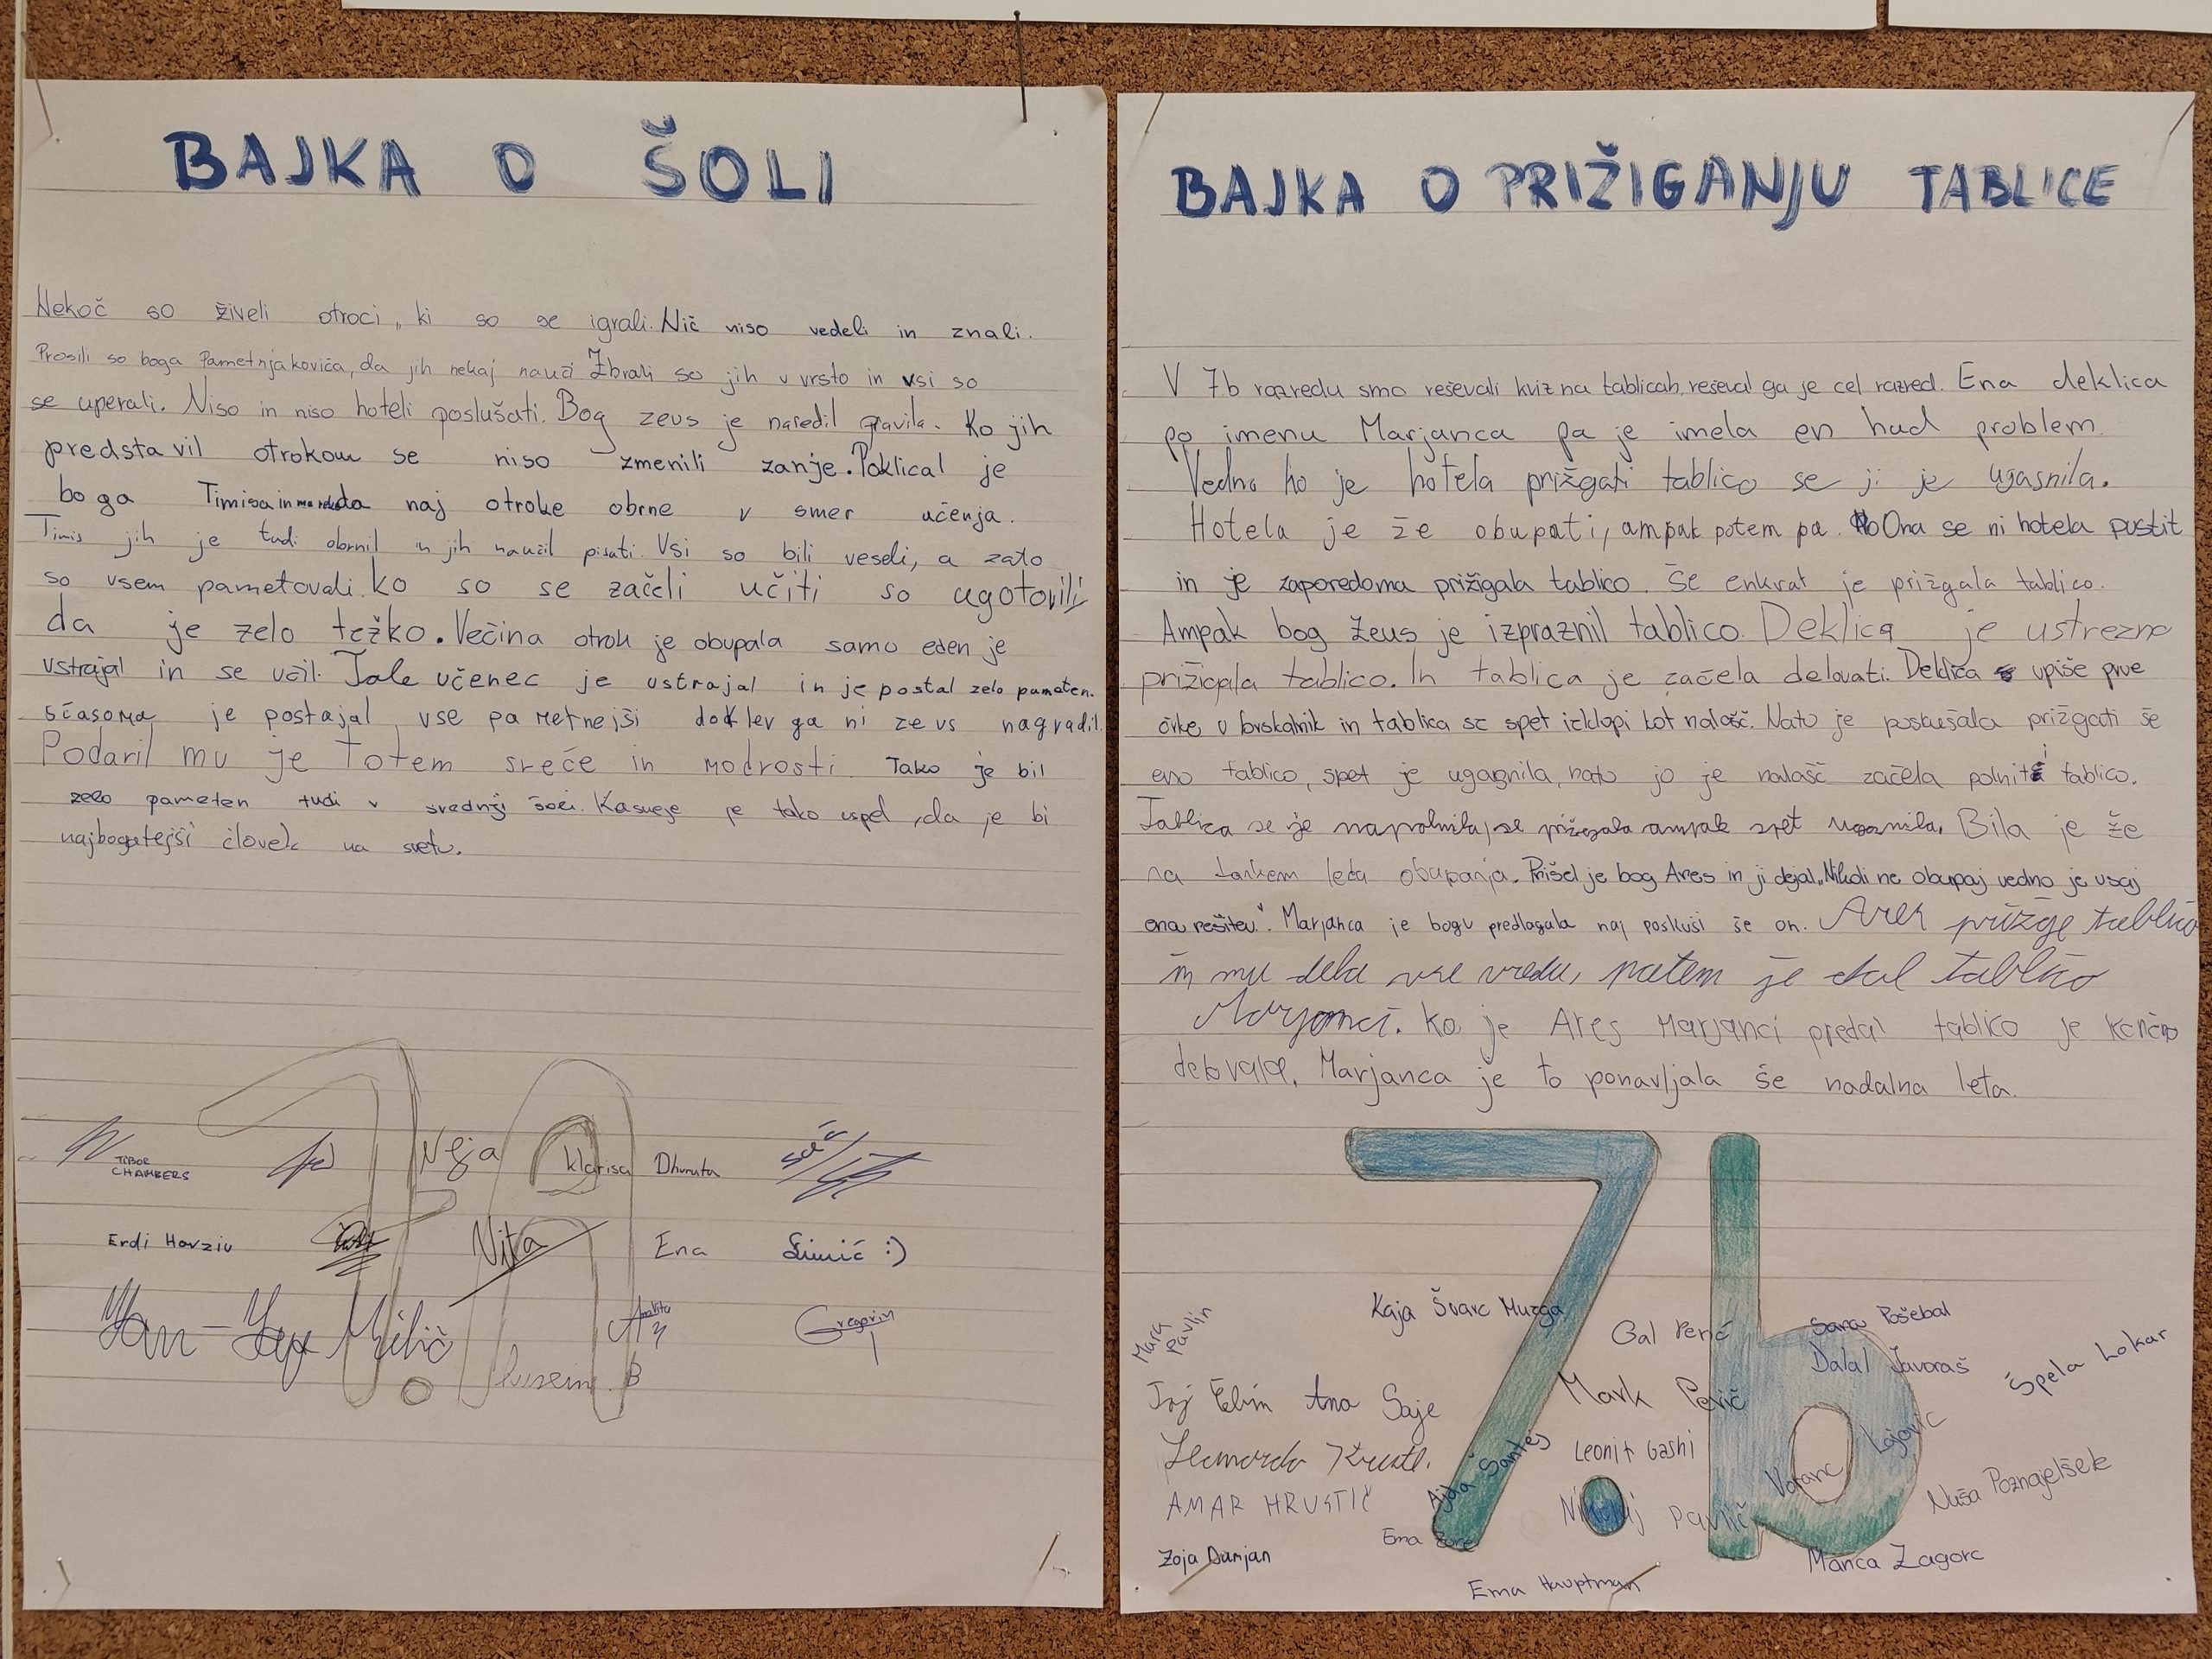 BAJKA O ŠOLI
Nekoč so živeli otroci, ki so se igrali. Nič niso vedeli in znali.
Prosili so boga Pametnjakoviča, da jih nekaj nauči Zbrali so jih v vrsto in vsi so
se uperali. Niso in niso hoteli poslušati. Bog zeus je naredil pravila. Ko jih
predstavil otrokom se niso zmenili zanje. Poklical je
boga Timisa in da naj otroke obrne v smer učenja.
Timis jih je tudi obrnil in jih naučil pisati. Vsi so bili veseli, a zato
so vsem pametovali. ko so se začeli učiti so ugotovili,
da je zelo težko. Večina otrok je obupala samo eden je
vstrajal in se učil. Tale učenec je ustrajal in je postal zelo pameten.
sčasoma je postajal vse pametnejši dokler ga ni zeus nagradil.
Podaril mu je Totem sreče in modrosti. Tako je bil
zelo pameten tudi v srednji šoli. Kasneje je tako uspel, da je bi
najbogatejši človek na svetu.
TIBOR CHAMBERS
Neja
Klarisa
Dhurata
Erdi Havziu
Nita
Ena
Simić :)
Yan-
Gregorin
Husein B
BAJKA O PRIŽIGANJU TABLICE
V 7b razredu smo reševali kviz na tablicah, reševal ga je cel razred. Ena deklica
po imenu Marjanca pa je imela en hud problem.
Vedno ko je hotela prižgati tablico se ji je ugasnila.
Hotela je že obupati, ampak potem pa. Ona se ni hotela pustit
in je zaporedoma prižigala tablico. Še enkrat je prižgala tablico.
Ampak bog Zeus je izpraznil tablico. Deklica je ustrezno
prižigala tablico. In tablica je začela delovati. Deklica upiše prve
črke v brskalnik in tablica se spet izklopi kot nalašč. Nato je poskušala prižgati še
eno tablico, spet je ugasnila, nato jo je nalašč začela polniti tablico.
Tablica se je napolnila, se prižgala ampak spet ugasnila. Bila je že
na tankem ledu obupanja. Prišel je bog Ares in ji dejal „Nikoli ne obupaj vedno je vsaj
ena rešitev". Marjanca je bogu predlagala naj poskusi še on. Ares prižge tablico
in mu dela vse vredu, potem je dal tablico
Marjanci. Ko je Ares Marjanci predal tablico je končno
delovala. Marjanca je to ponavljala še nadalna leta.
7.b
Mara Pavlin
Kaja Švarc Murga
Gal Perić
Sara Pošebal
Dalal Javoraš
Špela Lokar
Ana Saje
Mark Perič
Lojovic
Ajda Šantej
Leonit Gashi
Voranc
Nuša Poznajelšek
AMAR HRUSTIĆ
Nikolaj Pavlič
Ema
Zoja Damjan
Manca Zagorc
Ema Hauptman